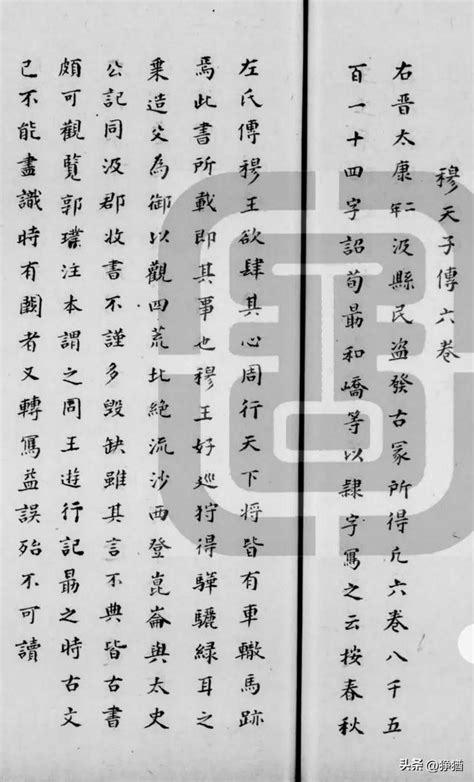 穆天子傳六卷
右晉太康二年汲縣民盜發古冢所得凡六卷八千五
百一十四字詔荀最和嶠等以隸字寫之云按春秋
左氏傳穆王欲肆其心周行天下將皆有車轍馬跡
焉此書所載即其事也穆王好巡狩得驊騮綠耳之
乗造父為御以觀四荒北絶流沙西登崑崙與太史
公記同汲郡收書不謹多毀缺雖其言不典皆古書
頗可觀覽郭璞注本謂之周王遊行記勗之時古文
已不能盡識時有闕者又轉寫益誤殆不可讀
头条 @狰猶